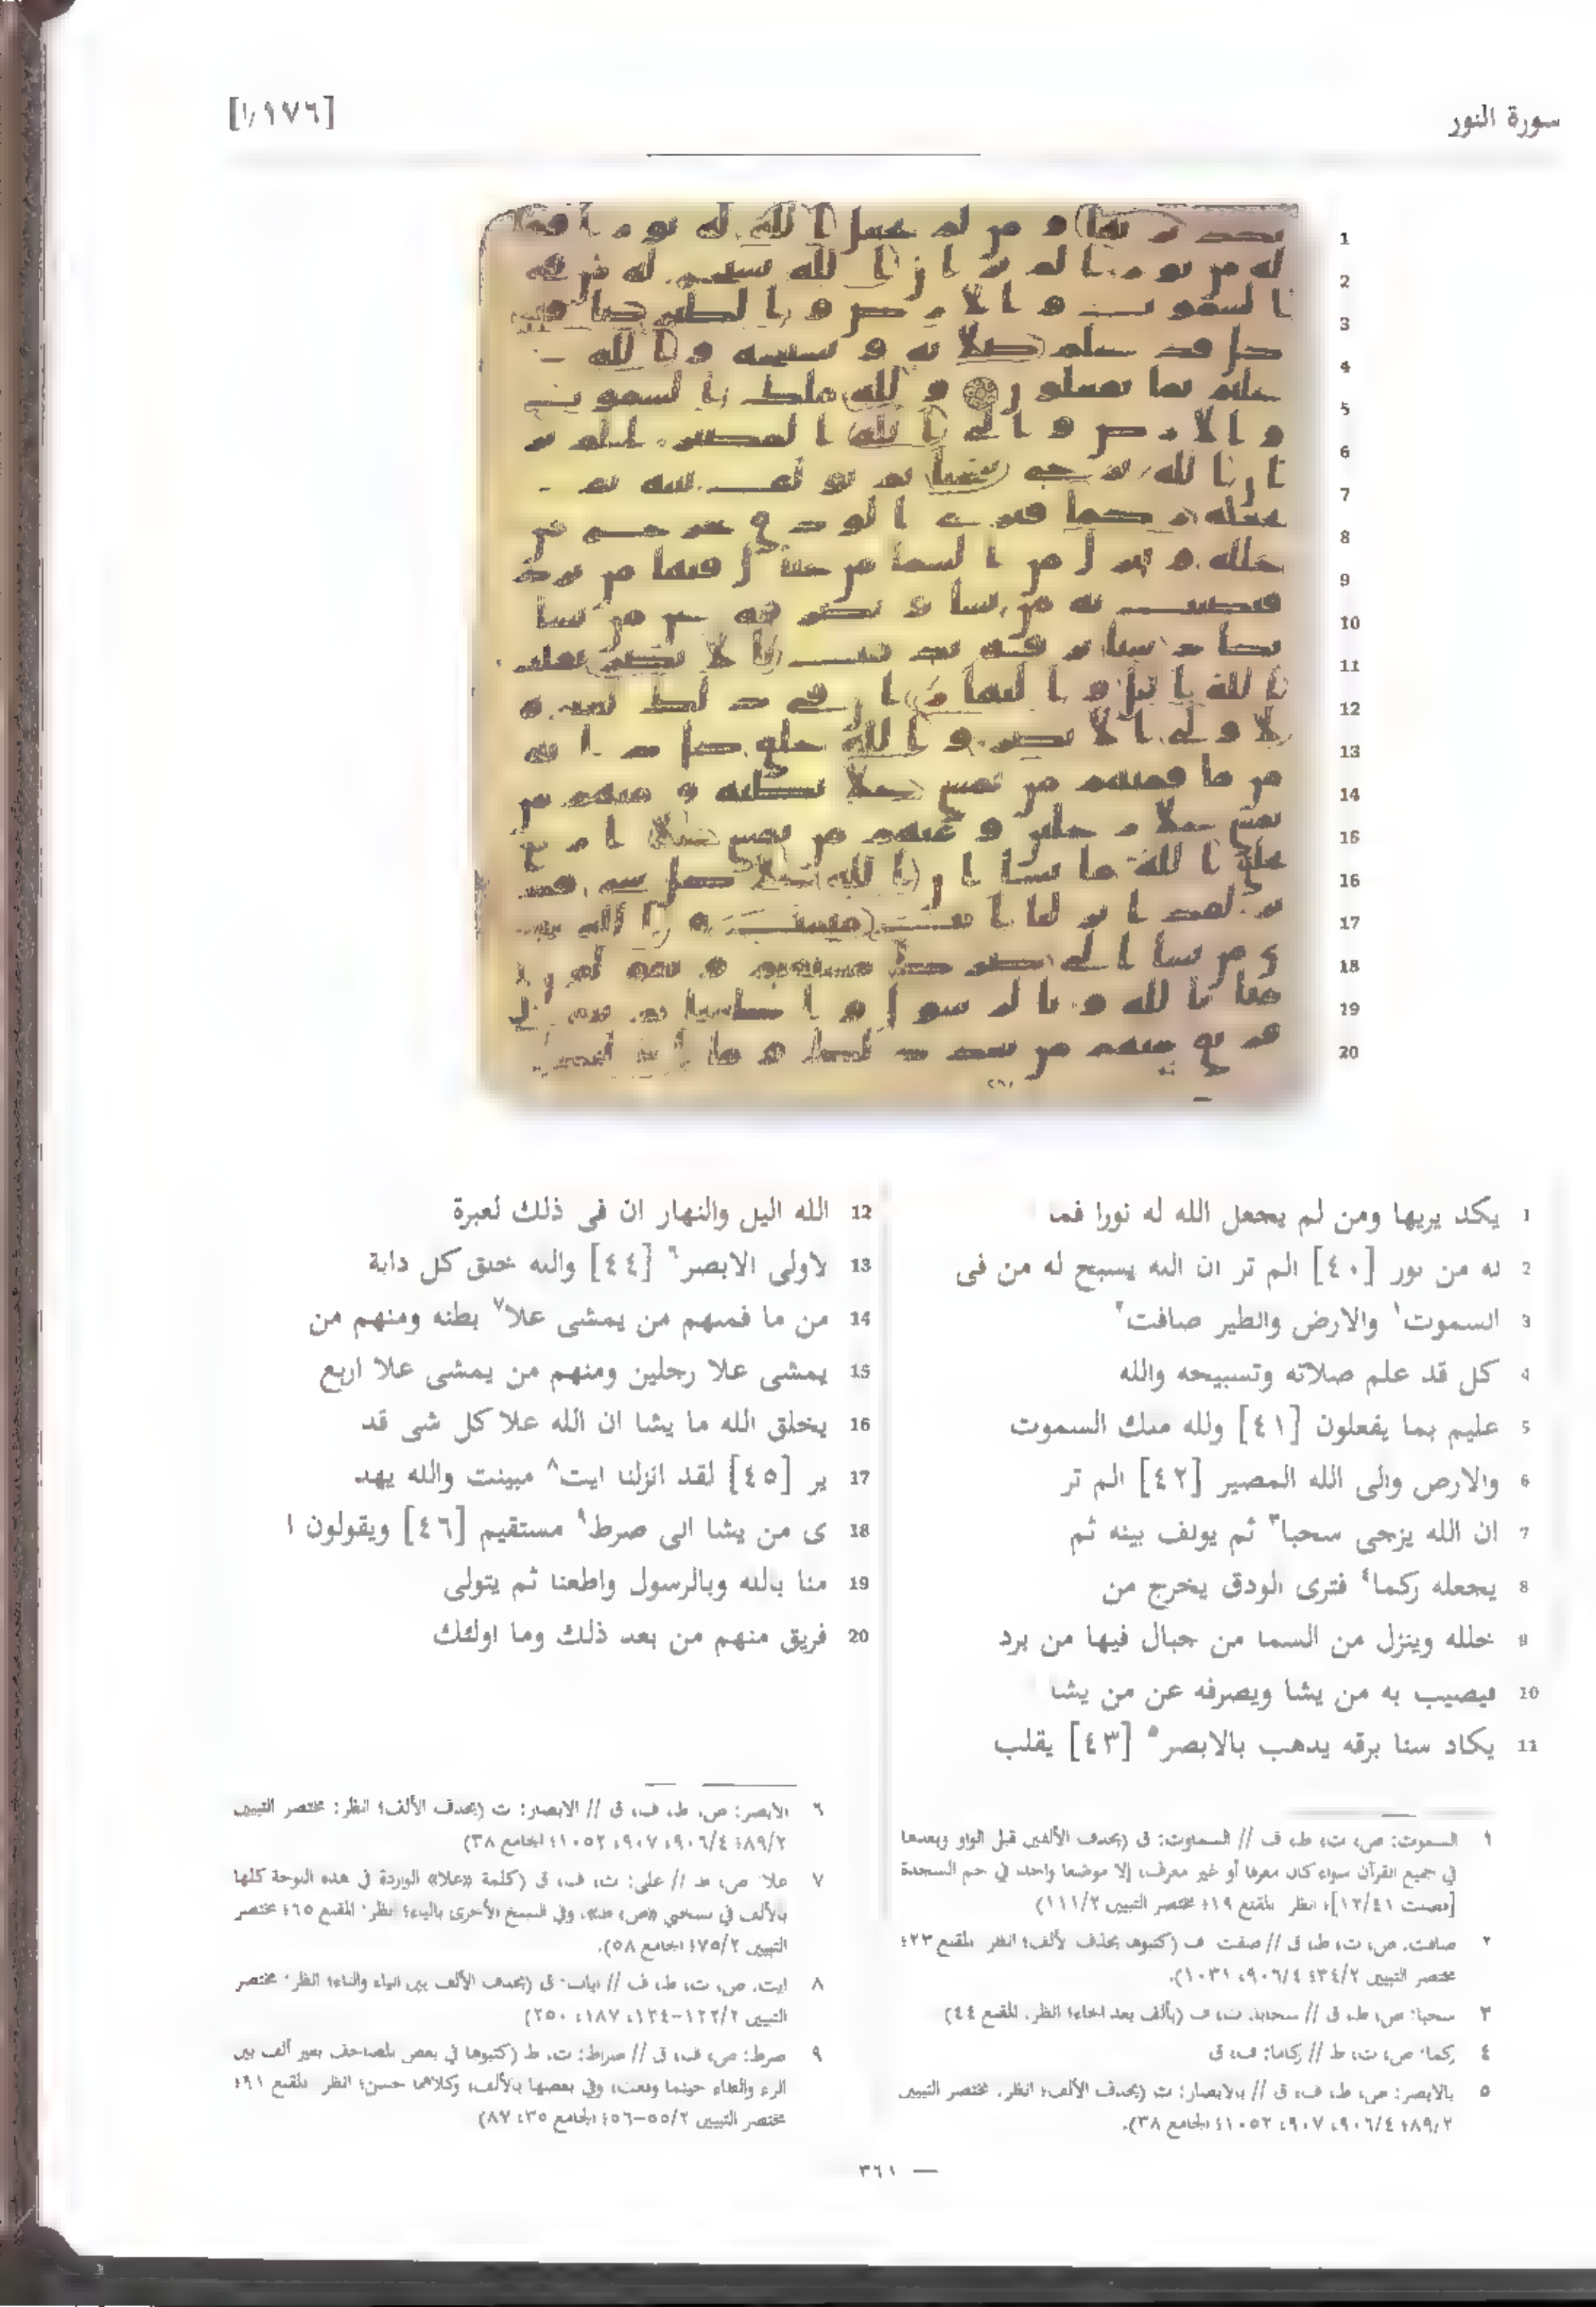 سورة النور
[١٧٦/أ]
1 يكد يريها ومن لم يجعل الله له نورا فما
2 له من نور [٤٠] الم تر ان الله يسبح له من فى
3 السموت١ والارض والطير صافت٢
4 كل قد علم صلاته وتسبيحه والله
5 عليم بما يفعلون [٤١] ولله ملك السموت
6 والارض والى الله المصير [٤٢] الم تر
7 ان الله يزجى سحبا٣ ثم يولف بينه ثم
8 يجعله ركما٤ فترى الودق يخرج من
9 خلله وينزل من السما من جبال فيها من برد
10 فيصيب به من يشا ويصرفه عن من يشا
11 يكاد سنا برقه يدهب بالابصر٥ [٤٣] يقلب
12 الله اليل والنهار ان فى ذلك لعبرة
13 لاولى الابصر٦ [٤٤] والله خلق كل دابة
14 من ما فمنهم من يمشى علا٧ بطنه ومنهم من
15 يمشى علا رجلين ومنهم من يمشى علا اربع
16 يخلق الله ما يشا ان الله علا كل شى قد
17 ير [٤٥] لقد انزلنا ايت٨ مبينت والله يهد
18 ى من يشا الى صرط٩ مستقيم [٤٦] ويقولون ا
19 منا بالله وبالرسول واطعنا ثم يتولى
20 فريق منهم من بعد ذلك وما اولئك
١ السموت: ص، ت، ط، ف // السماوت: ق (بحذف الألفين قبل الواو وبعدها
في جميع القرآن سواء كان معرفا أو غير معرف، إلا موضعا واحد، في حم السجدة
[فصلت ١٢/٤١]؛ انظر المقنع ١٩؛ مختصر التبيين ١١١/٢)
٢ صافت: ص، ت، ط، ق // صفت ف (كتبوها بحذف الألف؛ انظر المقنع ٢٣؛
مختصر التبيين ٣٤/٢؛ ٩٠٦/٤، ١٠٣١).
٣ سحبا: ص، ط، ق // سحابا: ت، ف (بألف بعد الحاء؛ انظر. المقنع ٤٤)
٤ ركما: ص، ت، ط // ركاما: ف، ق
٥ بالابصر: ص، ط، ف، ق // بالابصار: ت (بحذف الألف؛ انظر. مختصر التبيين
٨٩/٢؛ ٩٠٦/٤، ٩٠٧، ١٠٥٢؛ الجامع ٣٨).
٦ الابصر: ص، ط، ف، ق // الابصار: ت (بحذف الألف؛ انظر: مختصر التبيين
٨٩/٢؛ ٩٠٦/٤، ٩٠٧، ١٠٥٢؛ الجامع ٣٨)
٧ علا: ص، ط // على: ت، ف، ق (كلمة «علا» الواردة في هذه اللوحة كلها
بالألف في نسختي «ص، ط»، وفي النسخ الأخرى بالياء؛ انظر: المقنع ٦٥؛ مختصر
التبيين ٧٥/٢؛ الجامع ٥٨).
٨ ايت: ص، ت، ط، ف // ايات: ق (بحذف الألف بين الياء والتاء؛ انظر: مختصر
التبيين ١٢٢/٢-١٢٤، ١٨٧، ٢٥٠)
٩ صرط: ص، ف، ق // صراط: ت، ط (كتبوها في بعض المصاحف بغير ألف بين
الراء والطاء حيثما وقعت، وفي بعضها بالألف، وكلاهما حسن؛ انظر المقنع ٩١؛
مختصر التبيين ٥٥/٢-٥٦؛ الجامع ٣٥، ٨٧)
٣٦١